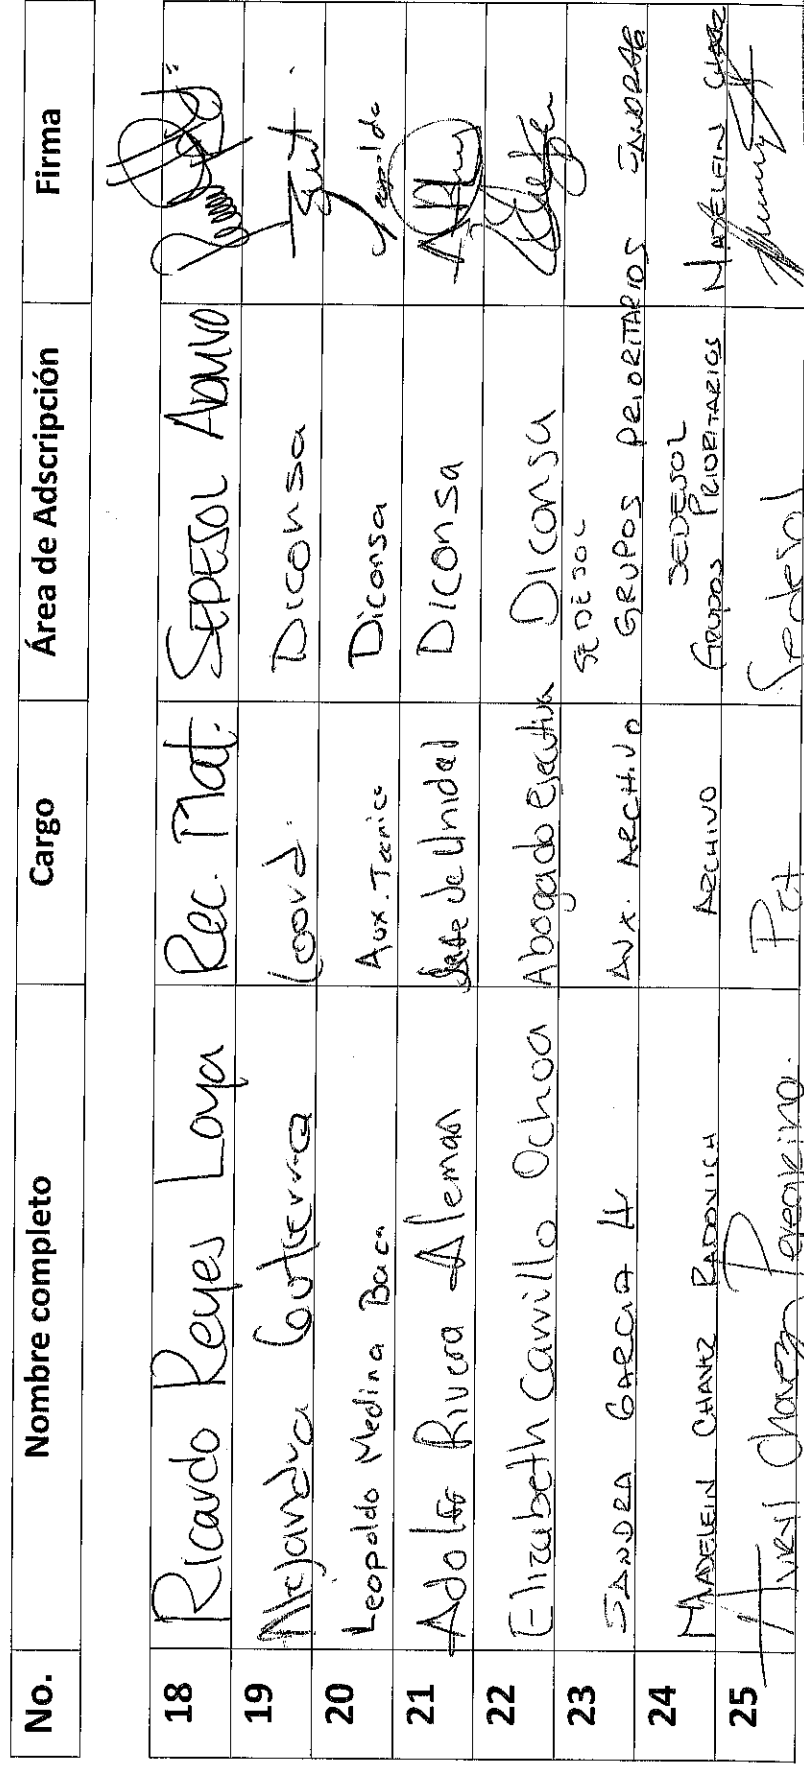 No. Nombre completo Cargo Área de Adscripción Firma
18 Ricardo Reyes Loya Rec. Mat. SEDESOL ADMVO
19 Alejandra Gutierrez Coord. Diconsa
20 Leopoldo Medina Baca Aux. Tecnico Diconsa Leopoldo
21 Adolfo Rivera Aleman Jefe de Unidad Diconsa
22 Elizabeth Carrillo Ochoa Abogado ejecutiva Diconsa
23 SANDRA GARCIA H AUX. ARCHIVO SEDESOL GRUPOS PRIORITARIOS SANDRAG
24 MADELEIN CHAVEZ RADOVICH ARCHIVO SEDESOL GRUPOS PRIORITARIOS MADELEIN CHAVEZ
25 Chavez Peregrino. Sedesol